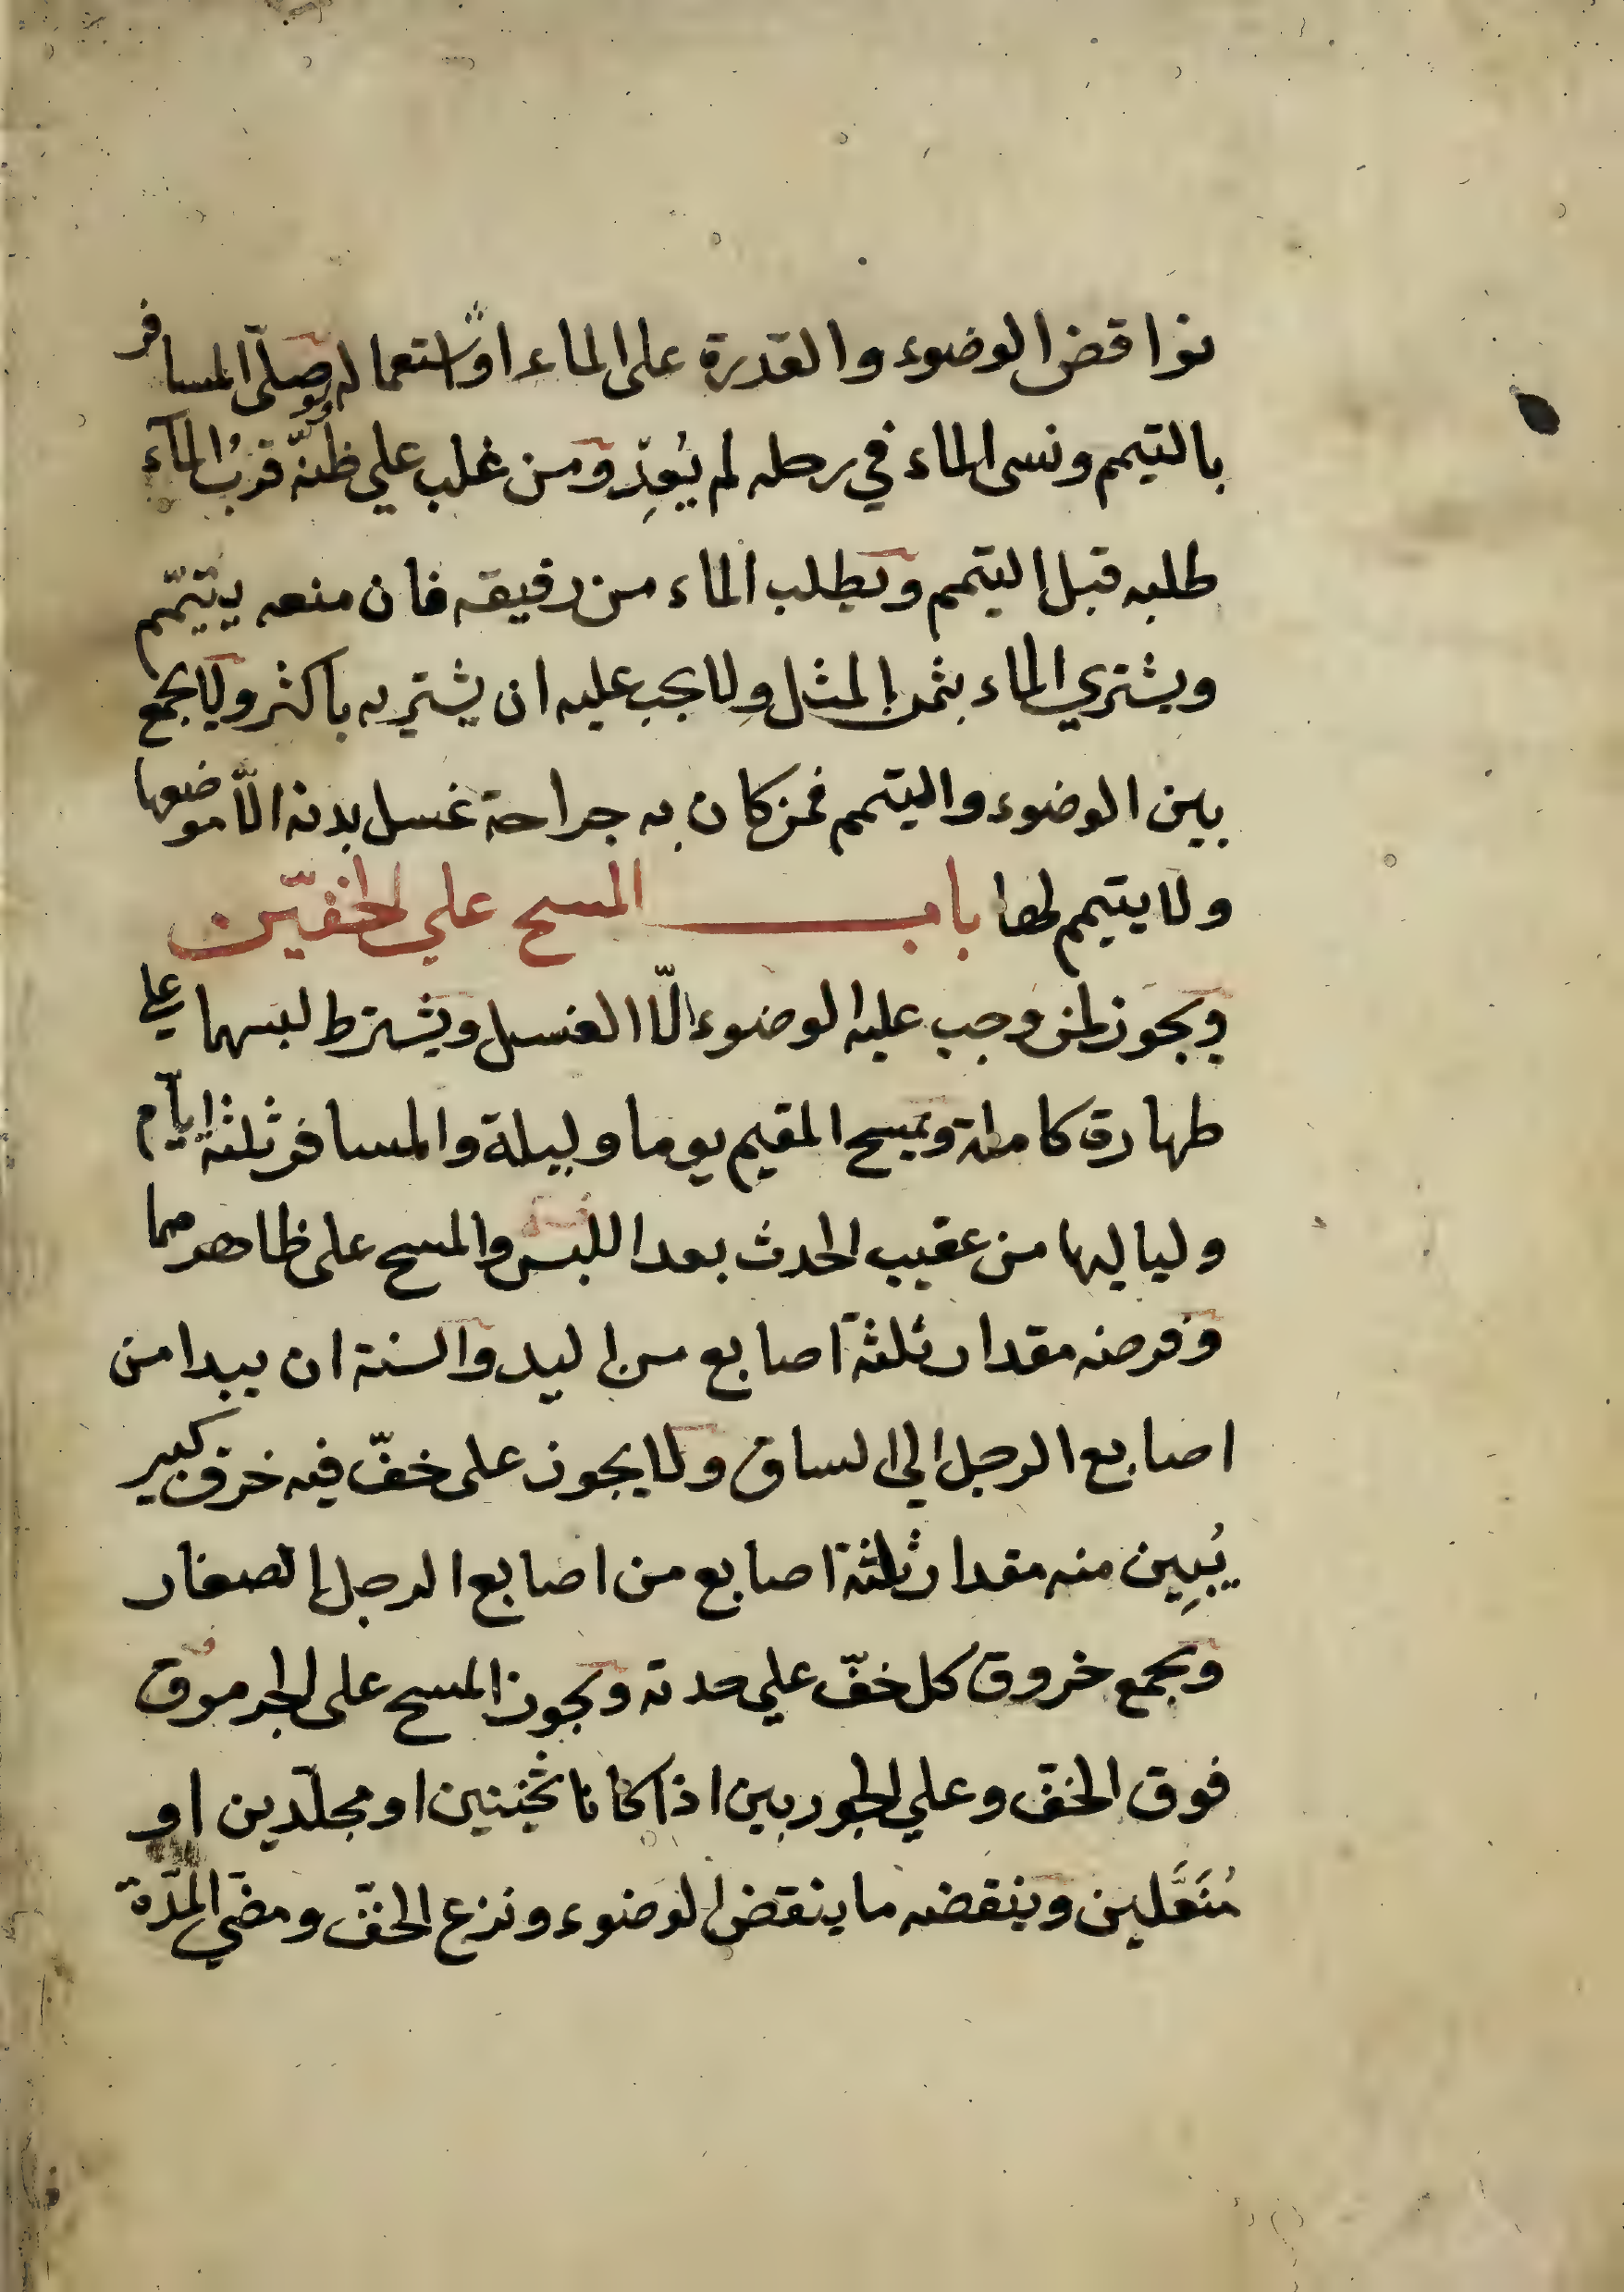 نواقض الوضوء والقدرة على الماء او استعماله ولو صلّى المسافر
بالتيمم ونسى الماء في رحله لم يُعِدْ ومن غلب علي ظنّه قربُ المآء
طلبه قبل التيمم ويطلب الماء من رفيقه فان منعه يتيمّم
ويشتري الماء بثمن المثل ولا يجب عليه ان يشتريه باكثر ولا يجمع
بين الوضوء والتيمم فمن كان به جراحة غسل بدنه الّا موضعها
ولا يتيمم لها باب المسح علي الخفّين
ويجوز لمن وجب عليه الوضوء الّا الغسل ويشترط لبسهما علي
طهارة كاملة ويمسح المقيم يوما وليلة والمسافر ثلثة ايّام
ولياليها من عقيب الحدث بعد اللبس والمسح على ظاهرهما
وفرضه مقدار ثلثة اصابع من اليد والسنة ان يبدا من
اصابع الرجل الي الساق ولا يجوز على خفّ فيه خرق كبير
يُبِين منه مقدار ثلثة اصابع من اصابع الرجل الصغار
ويجمع خروق كل خفّ علي حدته ويجوز المسح على الجرموق
فوق الخفّ وعلي الجوربين اذا كانا ثخينين او مجلّدين او
مُنَعَّلين وينقضه ما ينقض الوضوء ونزع الخفّ ومضي المدّة